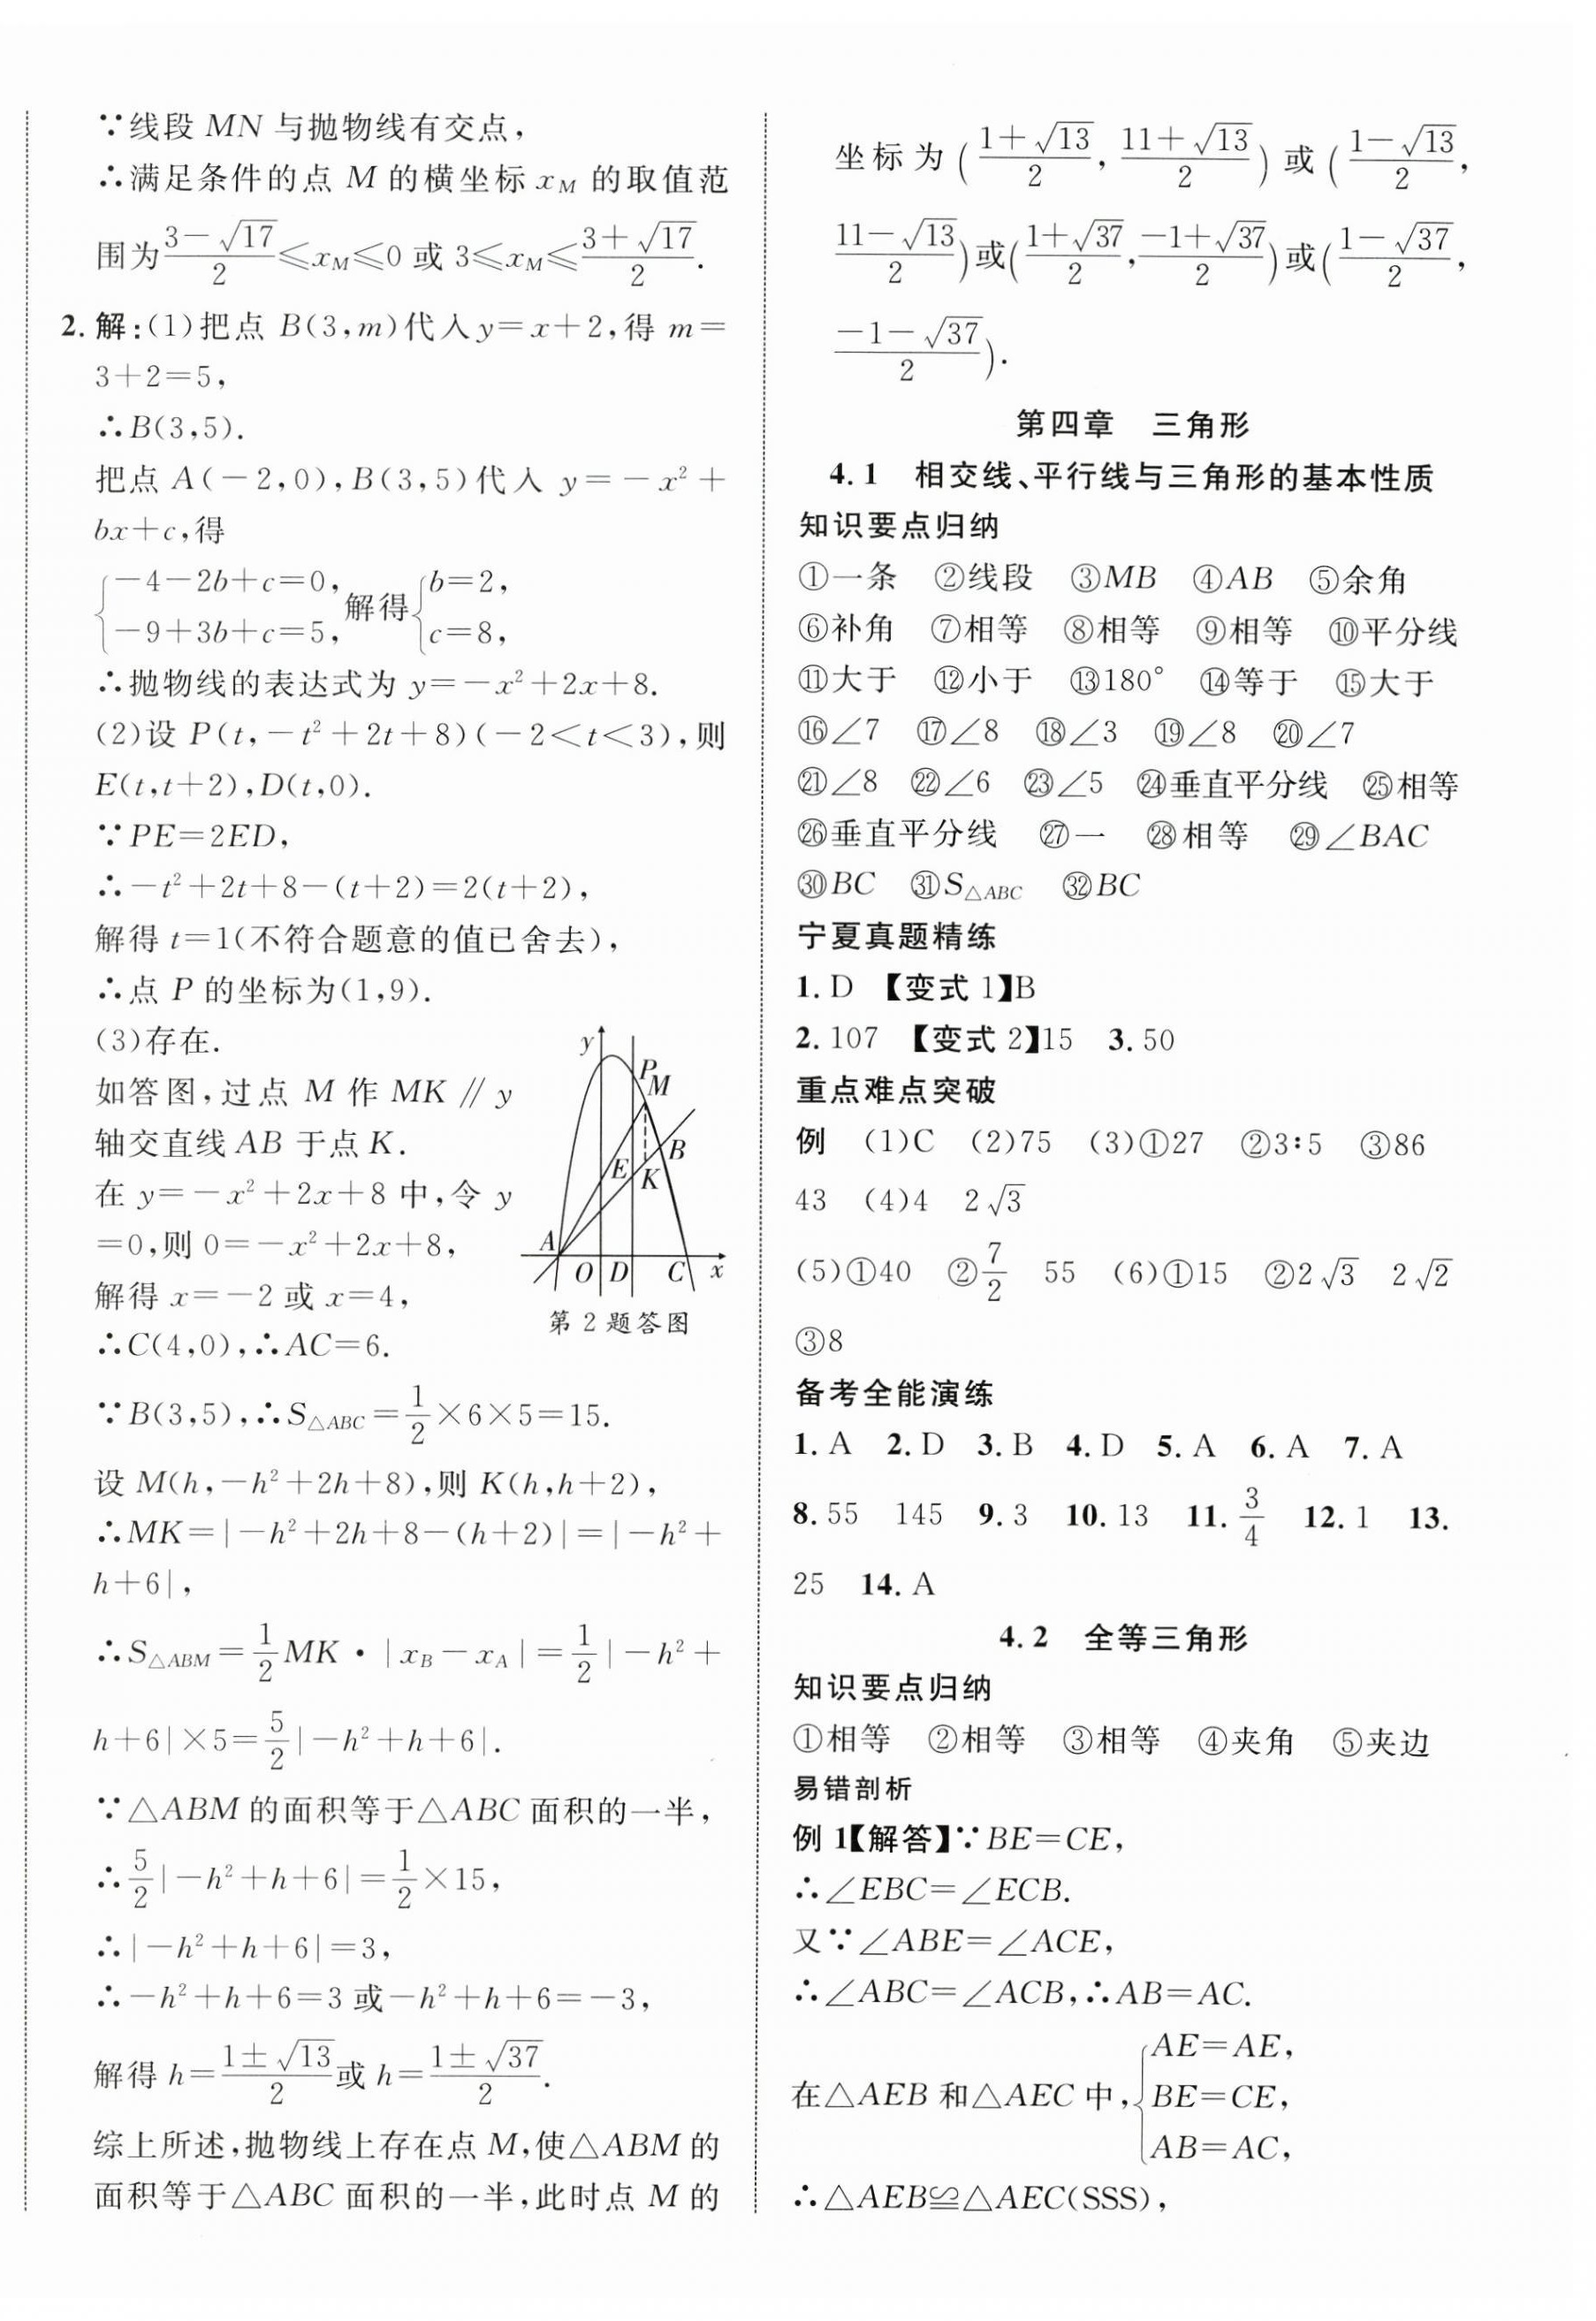 ∵线段 MN 与抛物线有交点,
∴满足条件的点 M 的横坐标 x_M 的取值范
围为\frac{3-\sqrt{17}}{2}≤x_M≤0 或 3≤x_M≤\frac{3+\sqrt{17}}{2}.
2. 解:(1)把点 B(3,m)代入y=x+2,得 m=
3+2=5,
∴B(3,5).
把点 A(-2,0),B(3,5)代入 y=-x²+
bx+c,得
{-4-2b+c=0, -9+3b+c=5, 解得{b=2, c=8,
∴抛物线的表达式为 y=-x²+2x+8.
(2)设 P(t,-t²+2t+8)(-2<t<3),则
E(t,t+2),D(t,0).
∵PE=2ED,
∴-t²+2t+8-(t+2)=2(t+2),
解得 t=1(不符合题意的值已舍去),
∴点 P 的坐标为(1,9).
(3)存在.
如答图,过点 M 作 MK∥y
轴交直线 AB 于点 K.
在 y=-x²+2x+8 中,令 y
=0,则 0=-x²+2x+8,
解得 x=-2 或 x=4,
∴C(4,0),∴AC=6.
y
P
M
B
E
K
A
O D C x
第 2 题答图
∵B(3,5),∴S_{△ABC}=\frac{1}{2}×6×5=15.
设 M(h,-h²+2h+8),则 K(h,h+2),
∴MK=|-h²+2h+8-(h+2)|=|-h²+
h+6|,
∴S_{△ABM}=\frac{1}{2}MK·|x_B-x_A|=\frac{1}{2}|-h²+
h+6|×5=\frac{5}{2}|-h²+h+6|.
∵△ABM 的面积等于△ABC 面积的一半,
∴\frac{5}{2}|-h²+h+6|=\frac{1}{2}×15,
∴|-h²+h+6|=3,
∴-h²+h+6=3 或-h²+h+6=-3,
解得 h=\frac{1±\sqrt{13}}{2}或 h=\frac{1±\sqrt{37}}{2}.
综上所述,抛物线上存在点 M,使△ABM 的
面积等于△ABC 面积的一半,此时点 M 的
坐标为(\frac{1+\sqrt{13}}{2},\frac{11+\sqrt{13}}{2})或(\frac{1-\sqrt{13}}{2},
\frac{11-\sqrt{13}}{2})或(\frac{1+\sqrt{37}}{2},\frac{-1+\sqrt{37}}{2})或(\frac{1-\sqrt{37}}{2},
\frac{-1-\sqrt{37}}{2}).
第四章 三角形
4.1 相交线、平行线与三角形的基本性质
知识要点归纳
①一条 ②线段 ③MB ④AB ⑤余角
⑥补角 ⑦相等 ⑧相等 ⑨相等 ⑩平分线
⑪大于 ⑫小于 ⑬180° ⑭等于 ⑮大于
⑯∠7 ⑰∠8 ⑱∠3 ⑲∠8 ⑳∠7
㉑∠8 ㉒∠6 ㉓∠5 ㉔垂直平分线 ㉕相等
㉖垂直平分线 ㉗一 ㉘相等 ㉙∠BAC
㉚BC ㉛S_{△ABC} ㉜BC
宁夏真题精练
1. D 【变式 1】B
2. 107 【变式 2】15 3. 50
重点难点突破
例 (1)C (2)75 (3)①27 ②3∶5 ③86
43 (4)4 2\sqrt{3}
(5)①40 ②\frac{7}{2} 55 (6)①15 ②2\sqrt{3} 2\sqrt{2}
③8
备考全能演练
1. A 2. D 3. B 4. D 5. A 6. A 7. A
8. 55 145 9. 3 10. 13 11. \frac{3}{4} 12. 1 13.
25 14. A
4.2 全等三角形
知识要点归纳
①相等 ②相等 ③相等 ④夹角 ⑤夹边
易错剖析
例 1【解答】∵BE=CE,
∴∠EBC=∠ECB.
又∵∠ABE=∠ACE,
∴∠ABC=∠ACB,∴AB=AC.
在△AEB 和△AEC 中,{AE=AE, BE=CE, AB=AC,
∴△AEB≌△AEC(SSS),